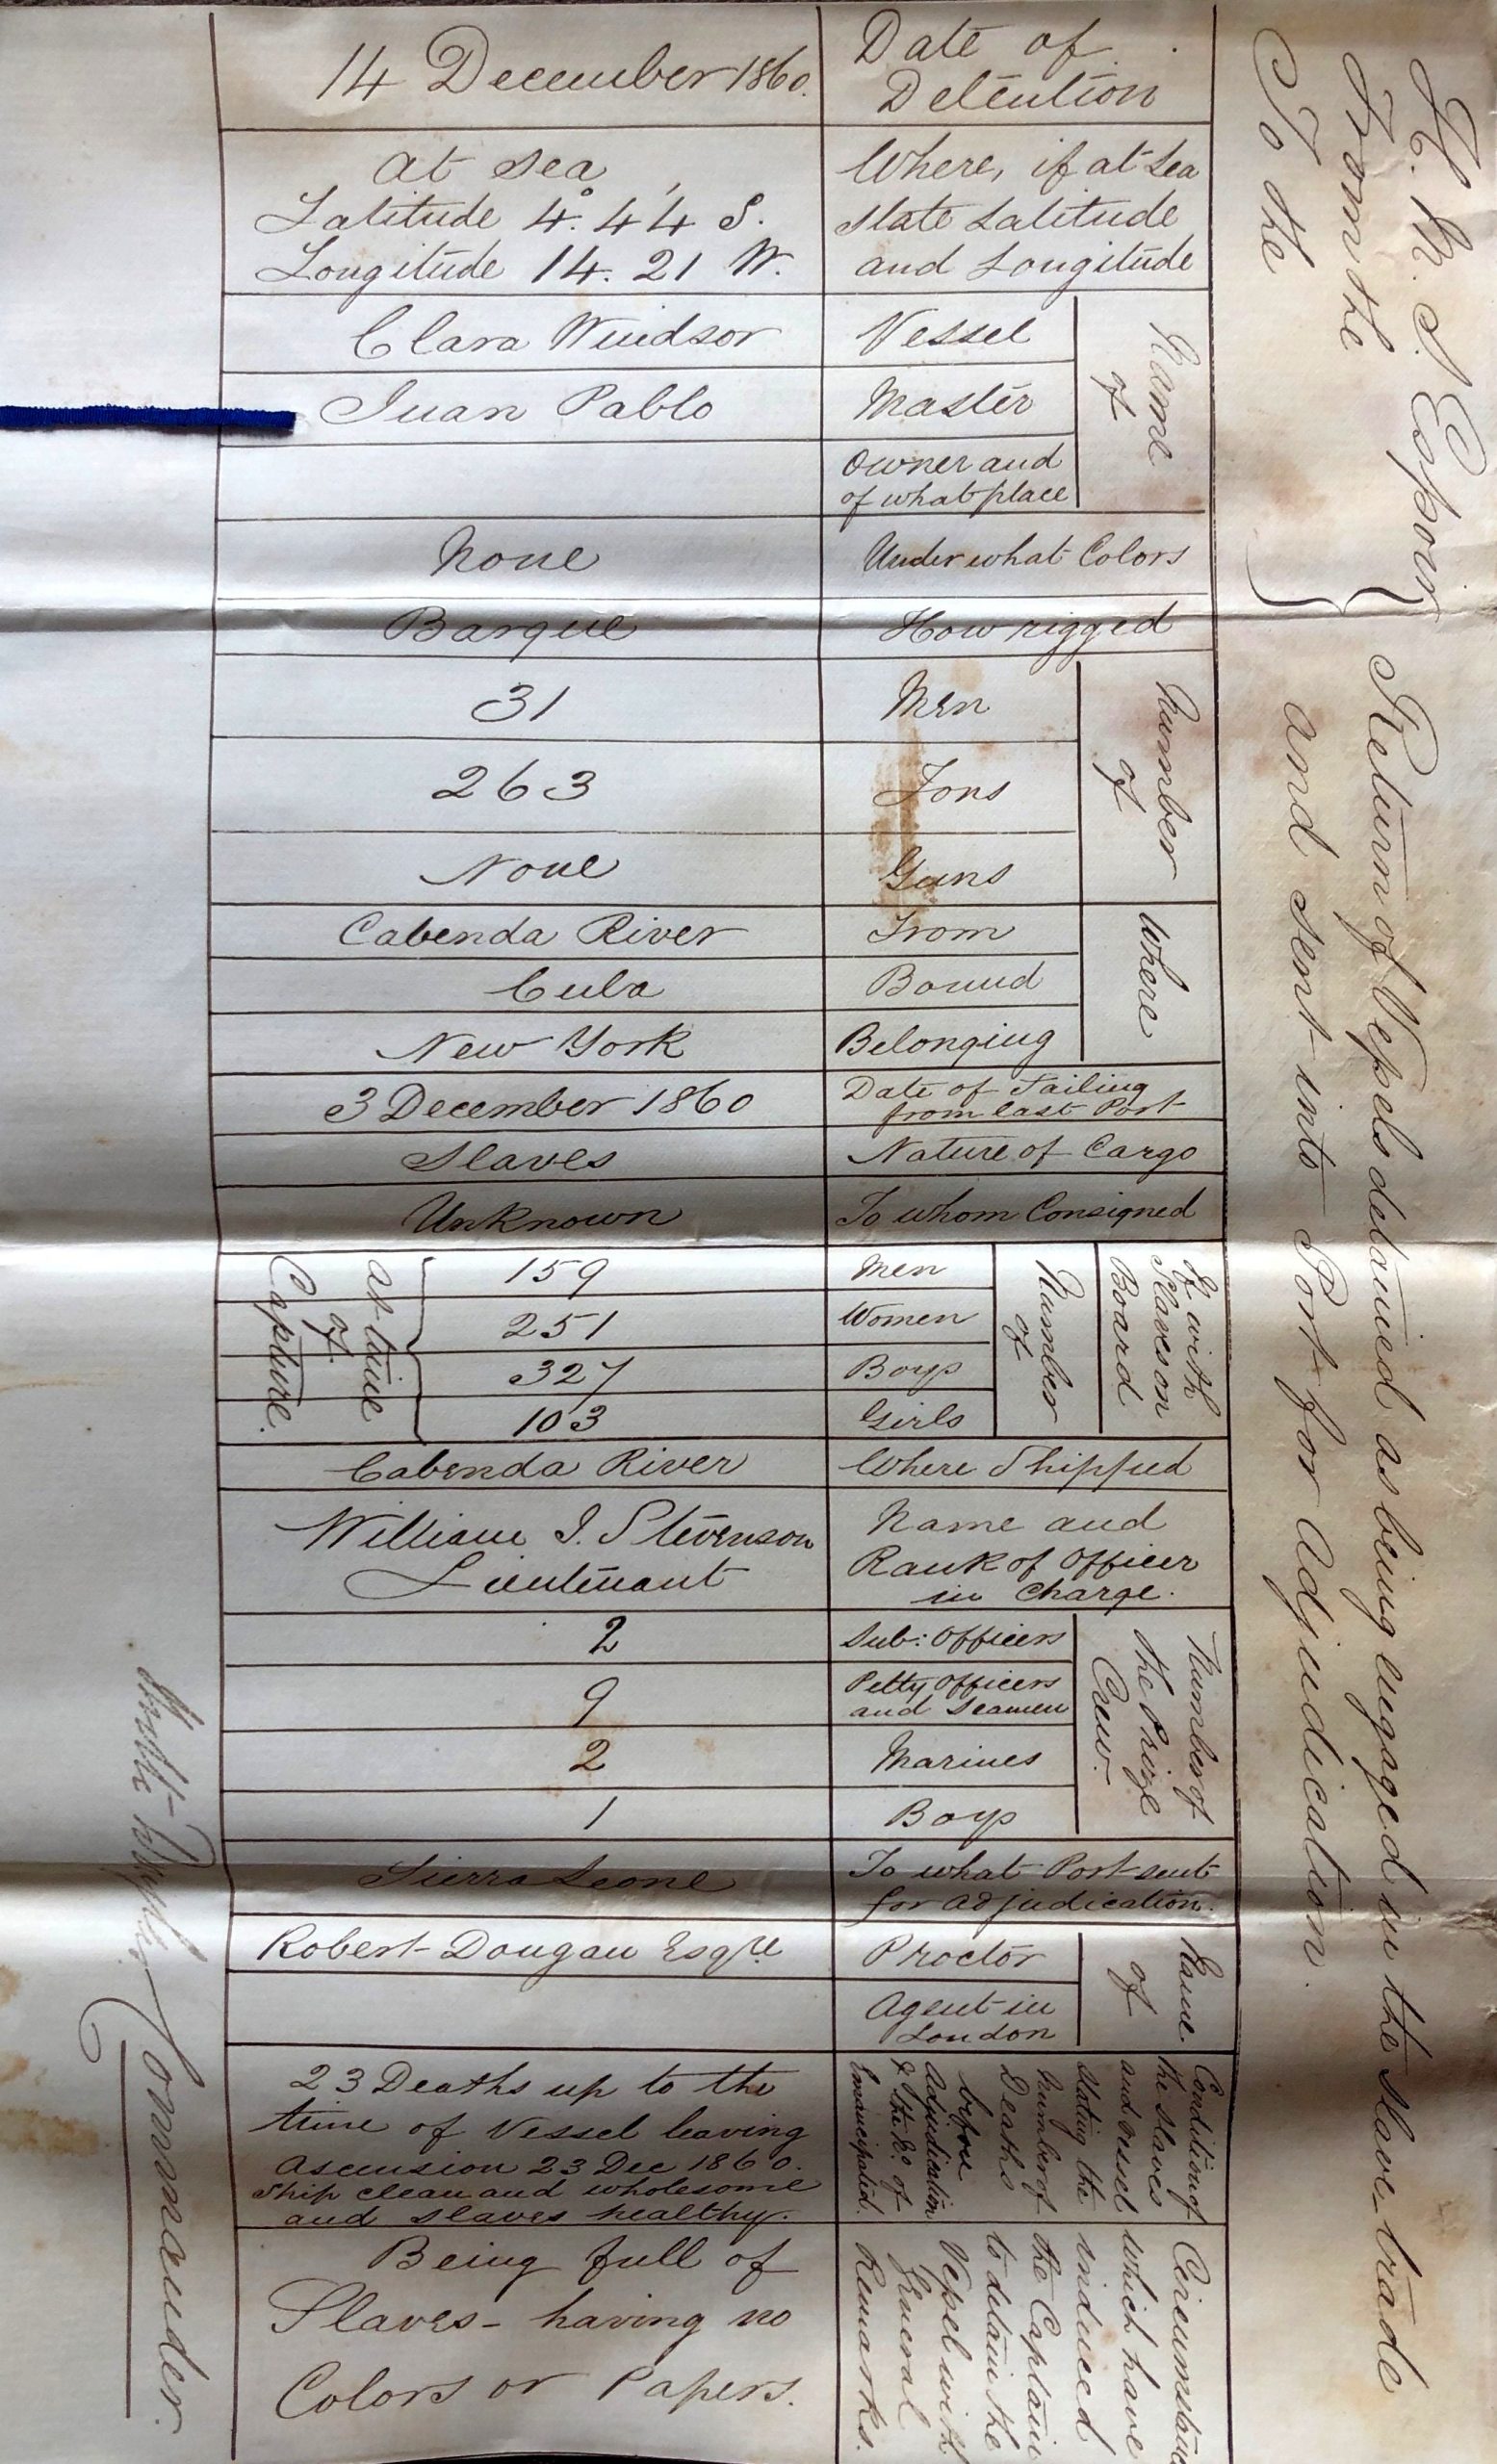 H. M. S. Espoir
From the
To the
Return of Vessels detained as being engaged in the Slave-trade
and sent into Port for Adjudication.
Date of
Detention
14 December 1860.
Where, if at Sea
state Latitude
and Longitude
at Sea
Latitude 4.° 44' S.
Longitude 14. 21 W.
Name
of
Vessel
Clara Windsor
Master
Juan Pablo
Owner and
of what place
Under what Colors
None
How rigged
Barque
Number
of
Men
31
Tons
263
Guns
None
Where
From
Cabenda River
Bound
Cuba
Belonging
New York
Date of Sailing
from last Port
3 December 1860
Nature of Cargo
Slaves
To whom Consigned
Unknown
If with
Slaves on
Board
Number
of
Men
159
Women
251
Boys
327
Girls
103
at time
of
Capture.
Where Shipped
Cabenda River
Name and
Rank of Officer
in Charge.
William I. Stevenson
Lieutenant
Number of
the Prize
Crew.
Sub: Officers
2
Petty Officers
and Seamen
9
Marines
2
Boys
1
To what Port sent
for adjudication.
Sierra Leone
Name
of
Proctor
Robert Dougan Esqre
Agent in
London
Condition of
the Slaves
and Vessel
stating the
Number of
Deaths
before
Adjudication
& the No. of
Emancipated.
23 Deaths up to the
time of Vessel leaving
Ascension 23 Dec 1860.
Ship clean and wholesome
and slaves healthy.
Circumstance
which have
induced
the Captain
to detain the
Vessel with
General
Remarks.
Being full of
Slaves - having no
Colors or Papers.
Commander.